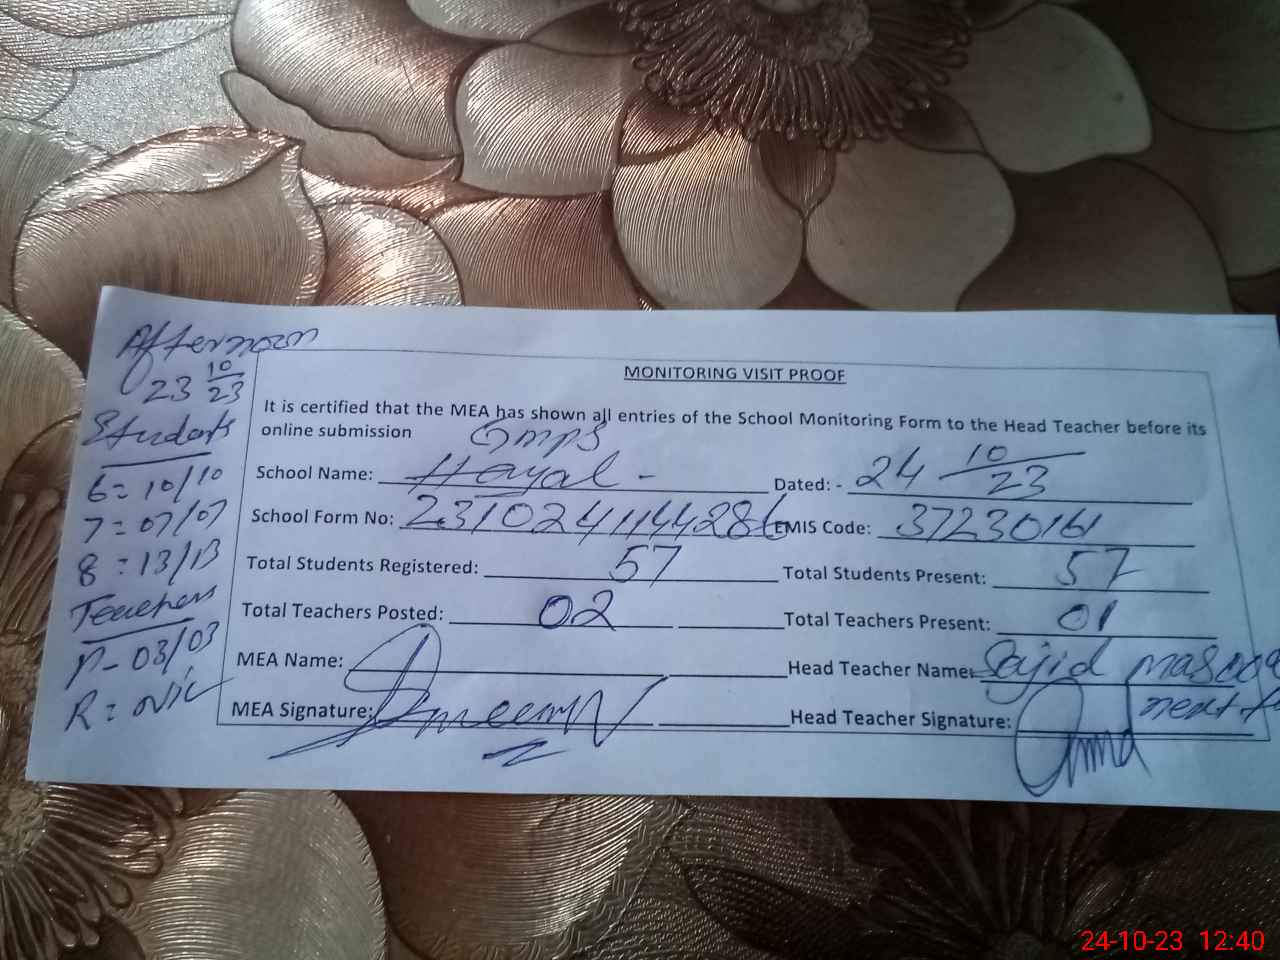 Afternoon
23 10/23
Students
6 = 10/10
7 = 07/07
8 = 13/13
Teachers
P- 03/03
R = Nil
MONITORING VISIT PROOF
It is certified that the MEA has shown all entries of the School Monitoring Form to the Head Teacher before its
online submission
GMPS
School Name: Hayal - Dated: - 24 10/23
School Form No: EMIS Code: 37230161
Total Students Registered: 57 Total Students Present: 57
Total Teachers Posted: 02 Total Teachers Present: 01
MEA Name: Head Teacher Name: Sajid
MEA Signature: Head Teacher Signature:
24-10-23 12:40